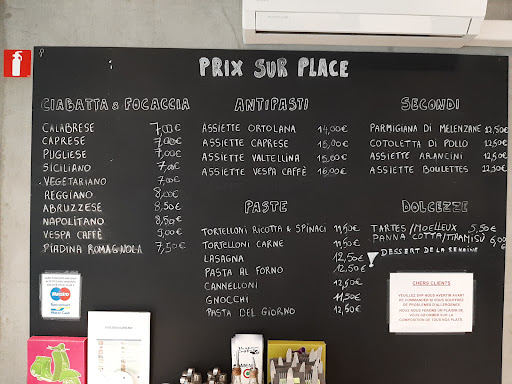 PRIX SUR PLACE
CIABATTA & FOCACCIA
CALABRESE 7,00€
CAPRESE 7,00€
PUGLIESE 7,00€
SICILIANO 7,00€
VEGETARIANO 7,00€
REGGIANO 8,00€
ABRUZZESE 8,50€
NAPOLITANO 8,50€
VESPA CAFFÈ 9,00€
PIADINA ROMAGNOLA 7,50€
ANTIPASTI
ASSIETTE ORTOLANA 14,00€
ASSIETTE CAPRESE 15,00€
ASSIETTE VALTELLINA 15,00€
ASSIETTE VESPA CAFFÈ 16,00€
PASTE
TORTELLONI RICOTTA & SPINACI 11,50€
TORTELLONI CARNE 11,50€
LASAGNA 12,50€
PASTA AL FORNO 12,50€
CANNELLONI 12,50€
GNOCCHI 11,50€
PASTA DEL GIORNO 12,50€
SECONDI
PARMIGIANA DI MELENZANE 12,50€
COTOLETTA DI POLLO 12,50€
ASSIETTE ARANCINI 12,50€
ASSIETTE BOULETTES 12,50€
DOLCEZZE
TARTES/MOELLEUX 5,50€
PANNA COTTA/TIRAMISÙ 6,00€
DESSERT DE LA SEMAINE
CHERS CLIENTS
VEUILLEZ SVP NOUS AVERTIR AVANT
DE COMMANDER SI VOUS SOUFFREZ
DE PROBLEMES D'ALLERGENES
Maestro